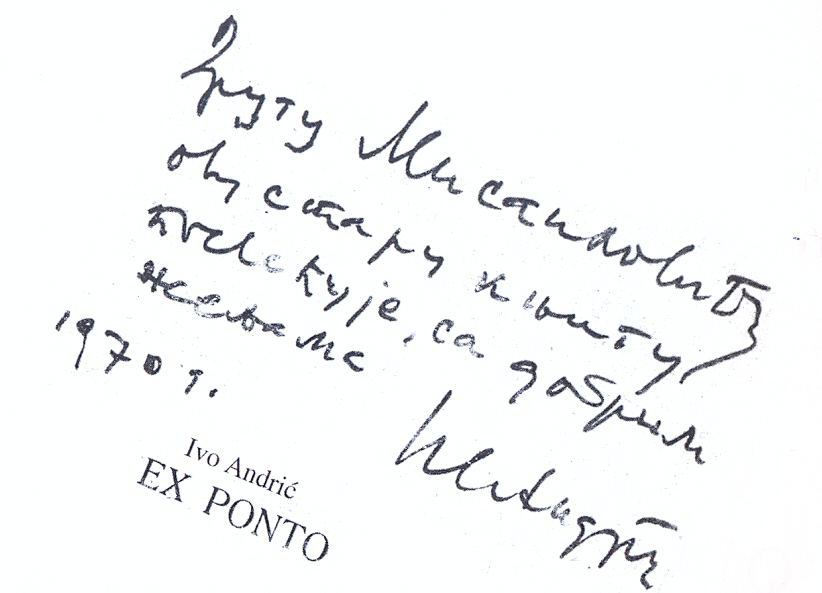 Другу Мисаиловићу
ову стару књигу
посвећује, са добрим
жељама
Иво Андрић
1970 г.
Ivo Andrić
EX PONTO